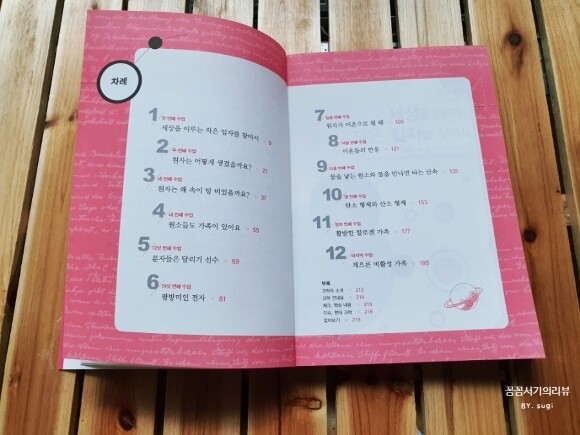 차례
1 첫 번째 수업
세상을 이루는 작은 입자를 찾아서 • 9
2 두 번째 수업
원자는 어떻게 생겼을까요? • 21
3 세 번째 수업
원자는 왜 속이 텅 비었을까요? • 37
4 네 번째 수업
원소들도 가족이 있어요 • 55
5 다섯 번째 수업
분자들은 달리기 선수 • 69
6 여섯 번째 수업
팔방미인 전자 • 81
7 일곱 번째 수업
원자가 이온으로 될 때 • 105
8 여덟 번째 수업
이온들의 반응 • 121
9 아홉 번째 수업
물을 낳는 원소와 물을 만나면 타는 금속 • 135
10 열 번째 수업
탄소 형제와 산소 형제 • 153
11 열한 번째 수업
활발한 할로겐 가족 • 177
12 마지막 수업
게으른 비활성 가족 • 195
부록
과학자 소개 • 212
과학 연대표 • 214
체크, 핵심 내용 • 215
이슈, 현대 과학 • 216
찾아보기 • 218
꼼꼼서기의리뷰
BY. sugi